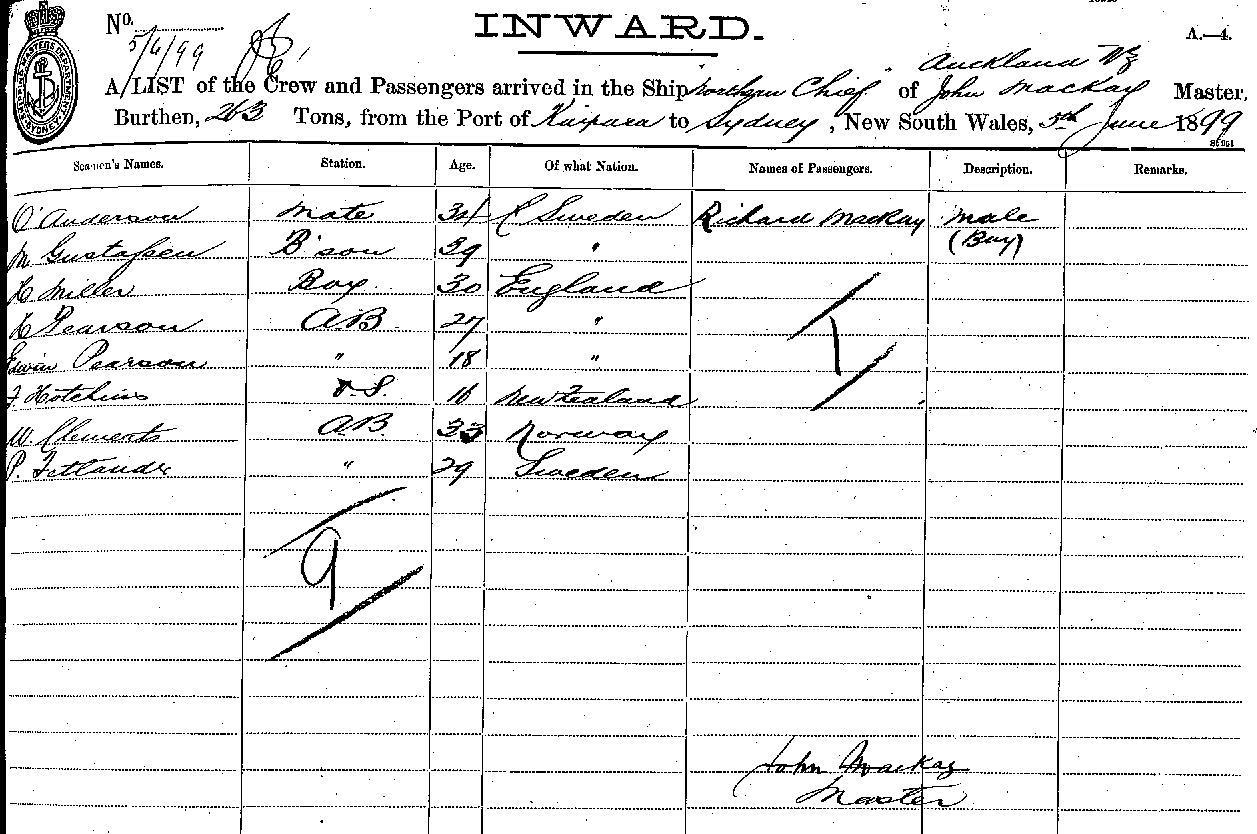 No. INWARD. A.—4.
5/6/99
Auckland NZ
A LIST of the Crew and Passengers arrived in the Ship Northern Chief of John Mackay Master,
Burthen, 263 Tons, from the Port of Kaipara to Sydney, New South Wales, 5th June 1899
Seamen's Names. Station. Age. Of what Nation. Names of Passengers. Description. Remarks.
O' Anderson Mate 34 Sweden Richard Mackay Male
(Boy)
M Gustafsen B'son 39 "
H Miller 30 England
H Pearson AB 27 "
Edwin Pearson " 18 "
J Hotchins O.S. 16 New Zealand
W. Clements A.B. 33 Norway
P. " 29 Sweden
1
9
John Mackay
Master